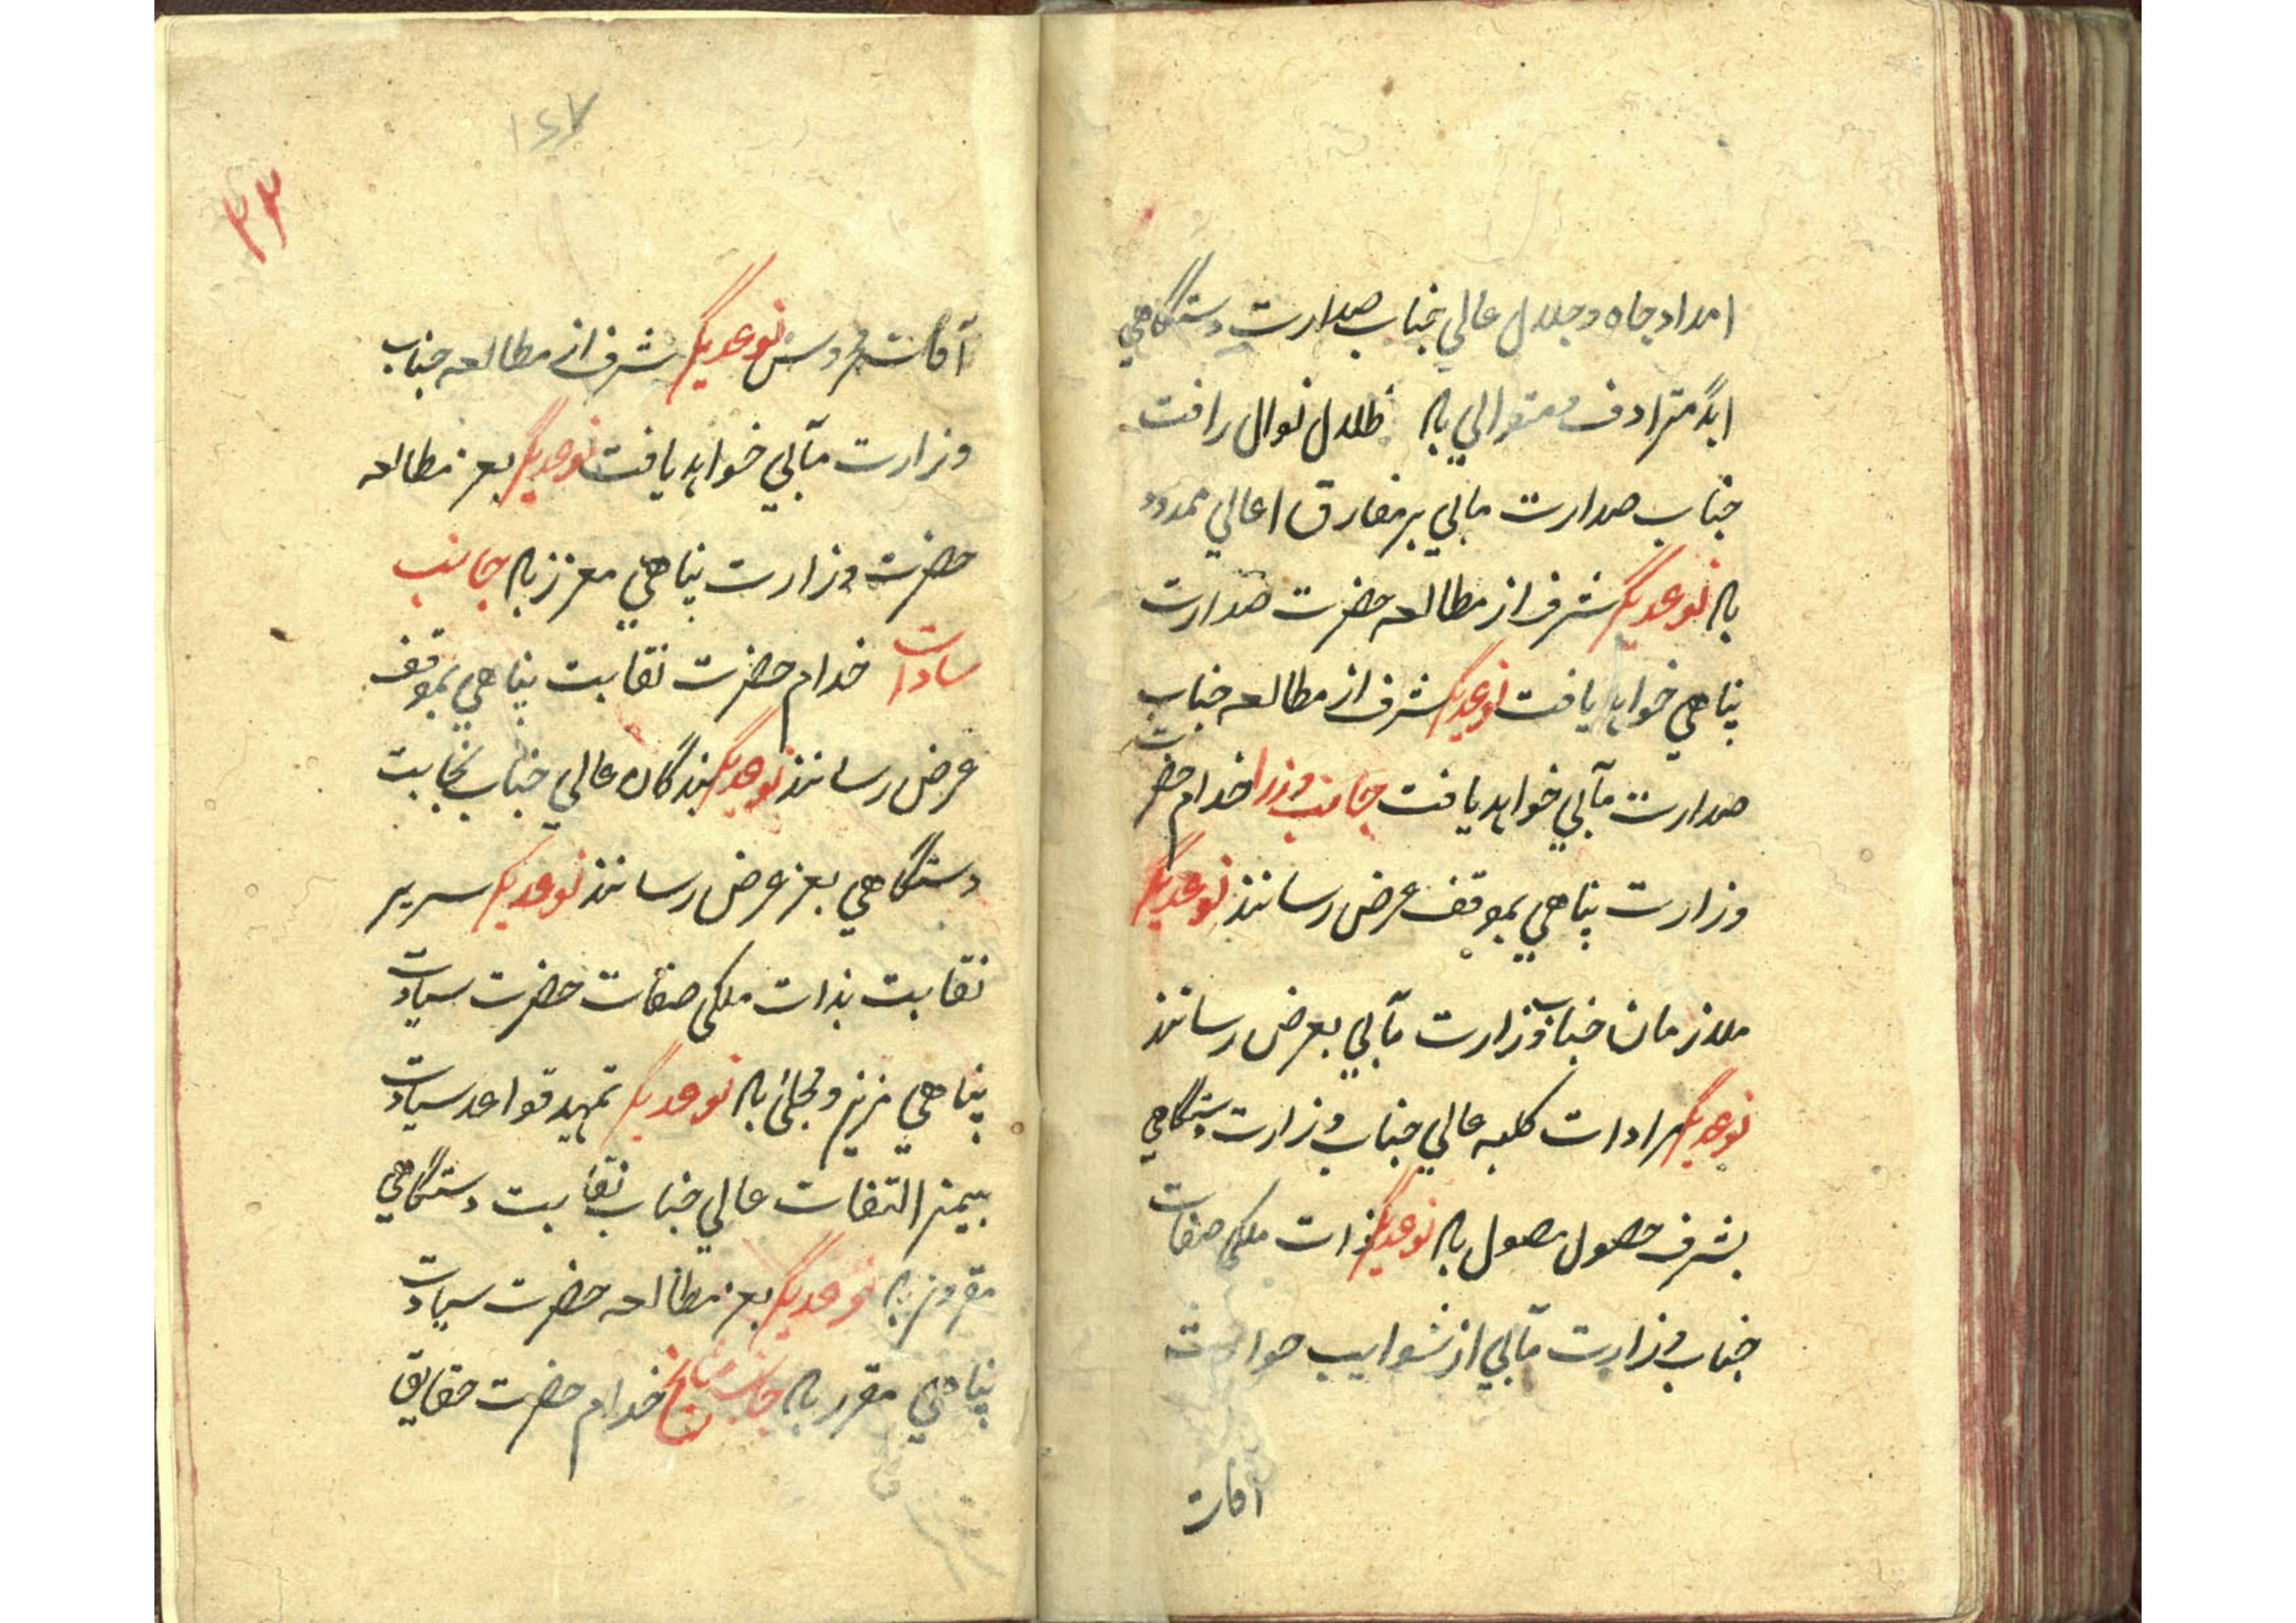 امداد جاه و جلال عالي جناب صدارت دستگاهي
ابدا مترادف و متوالي باد ظلال نوال رافت
جناب صدارت مآلي بر مفارق اعالي ممدود
باد نوعديگر شرف از مطالعه حضرت صدارت
پناهي خواهد يافت نوعديگر شرف از مطالعه جناب
صدارت مآلي خواهد يافت جانب وزرا خدام حضرت
وزارت پناهي بموقف عرض رسانند نوعديگر
ملازمان جناب وزارت مآلي بعرض رسانند
نوعديگر مرادات كلبه عالي جناب وزارت دستگاهي
بشرف حصول موصول باد نوعديگر ذات ملكي صفات
جناب وزارت مآلي از شوايب حوادث
آفات
١٤٧
٣٣
آفات محروس نوعديگر شرف از مطالعه جناب
وزارت مآلي خواهد يافت نوعديگر بعز مطالعه
حضرت وزارت پناهي معزز باد جانب
سادات خدام حضرت نقابت پناهي بموقف
عرض رسانند نوعديگر بندگان عالي جناب نجابت
دستگاهي بعز عرض رسانند نوعديگر سرير
نقابت بذات ملكي صفات حضرت سيادت
پناهي مزين و محلي باد نوعديگر تمهيد قواعد سيادت
بيمن التفات عالي جناب نقابت دستگاهي
مقرون باد نوعديگر بعز مطالعه حضرت سيادت
پناهي مقرر باد جانب مشايخ خدام حضرت حقايق